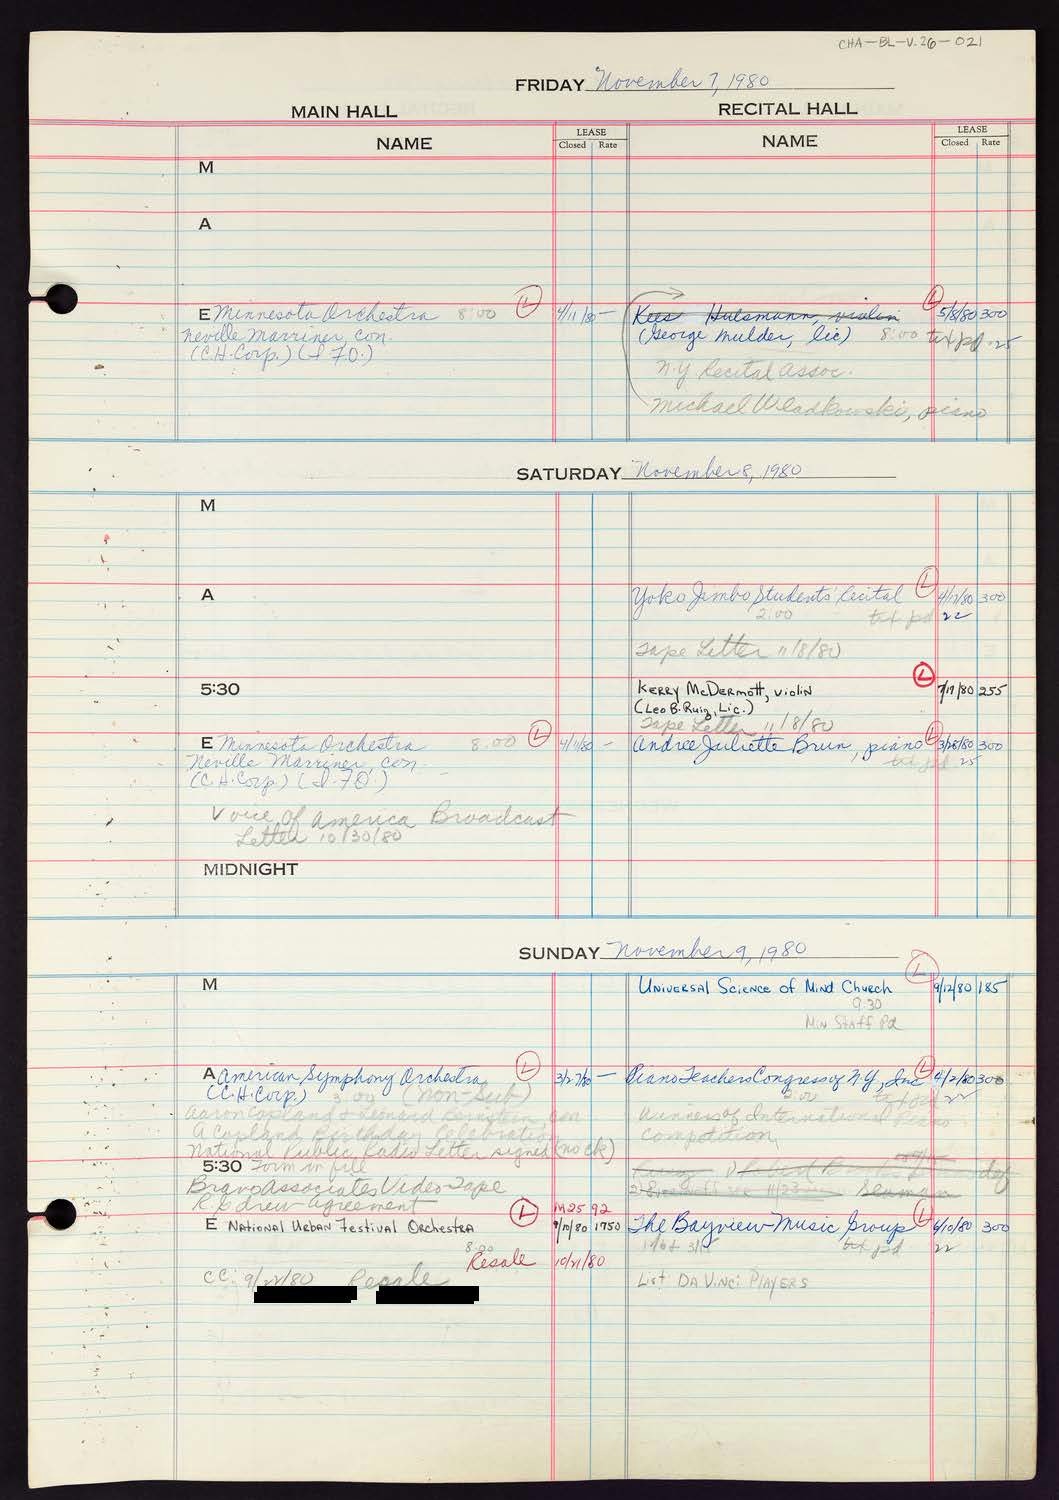 CHA-BL-V.26-021
FRIDAY November 7, 1980
MAIN HALL
RECITAL HALL
NAME
LEASE
Closed Rate
NAME
LEASE
Closed Rate
M
A
E Minnesota Orchestra 8:00 L 4/11/80 —
Neville Marriner, con.
(C.H.Corp.) (I 70.)
Kees Hulsmann, violin L 5/8/80 300
(George Mulder, lic) 8:00 txt pd. 25
N.Y. Recital Assoc.
Michael Wladkowski, piano
SATURDAY November 8, 1980
M
A
Yoko Jimbo Students' Recital L 4/17/80 300
2:00 txt pd 22
Tape Letter 11/8/80
5:30
Kerry McDermott, violin L 7/17/80 255
(Leo B. Ruiz, Lic.)
Tape Letter 11/8/80
E Minnesota Orchestra 8:00 L 4/11/80 -
Neville Marriner, con.
(C.H.Corp.) (I-70.)
Voice of America Broadcast
Letter 10/30/80
Andree Juliette Brun, piano L 3/28/80 300
txt pd. 25
MIDNIGHT
SUNDAY November 9, 1980
M
Universal Science of Mind Church L 9/12/80 185
9:30
Min Staff Pd
A American Symphony Orchestra L 3/27/80 —
(C.H.Corp.) 3:00 (non-sub)
Aaron Copland & Leonard Bernstein, con
A Copland Birthday Celebration
National Public Radio Letter signed (no ck)
Piano Teachers Congress of N.Y., Inc L 4/2/80 300
5:00 txt pd 22
Winners of International Piano
Competition
5:30 Form in file
Bravo Associates Video-Tape
R. & drew agreement
Seaman
E National Urban Festival Orchestra L 9/10/80 1750
M25 92
8:00
Resale 10/21/80
CC: 9/22/80 Resale
The Bayview Music Group L 6/10/80 300
txt pd 22
List: Da Vinci Players